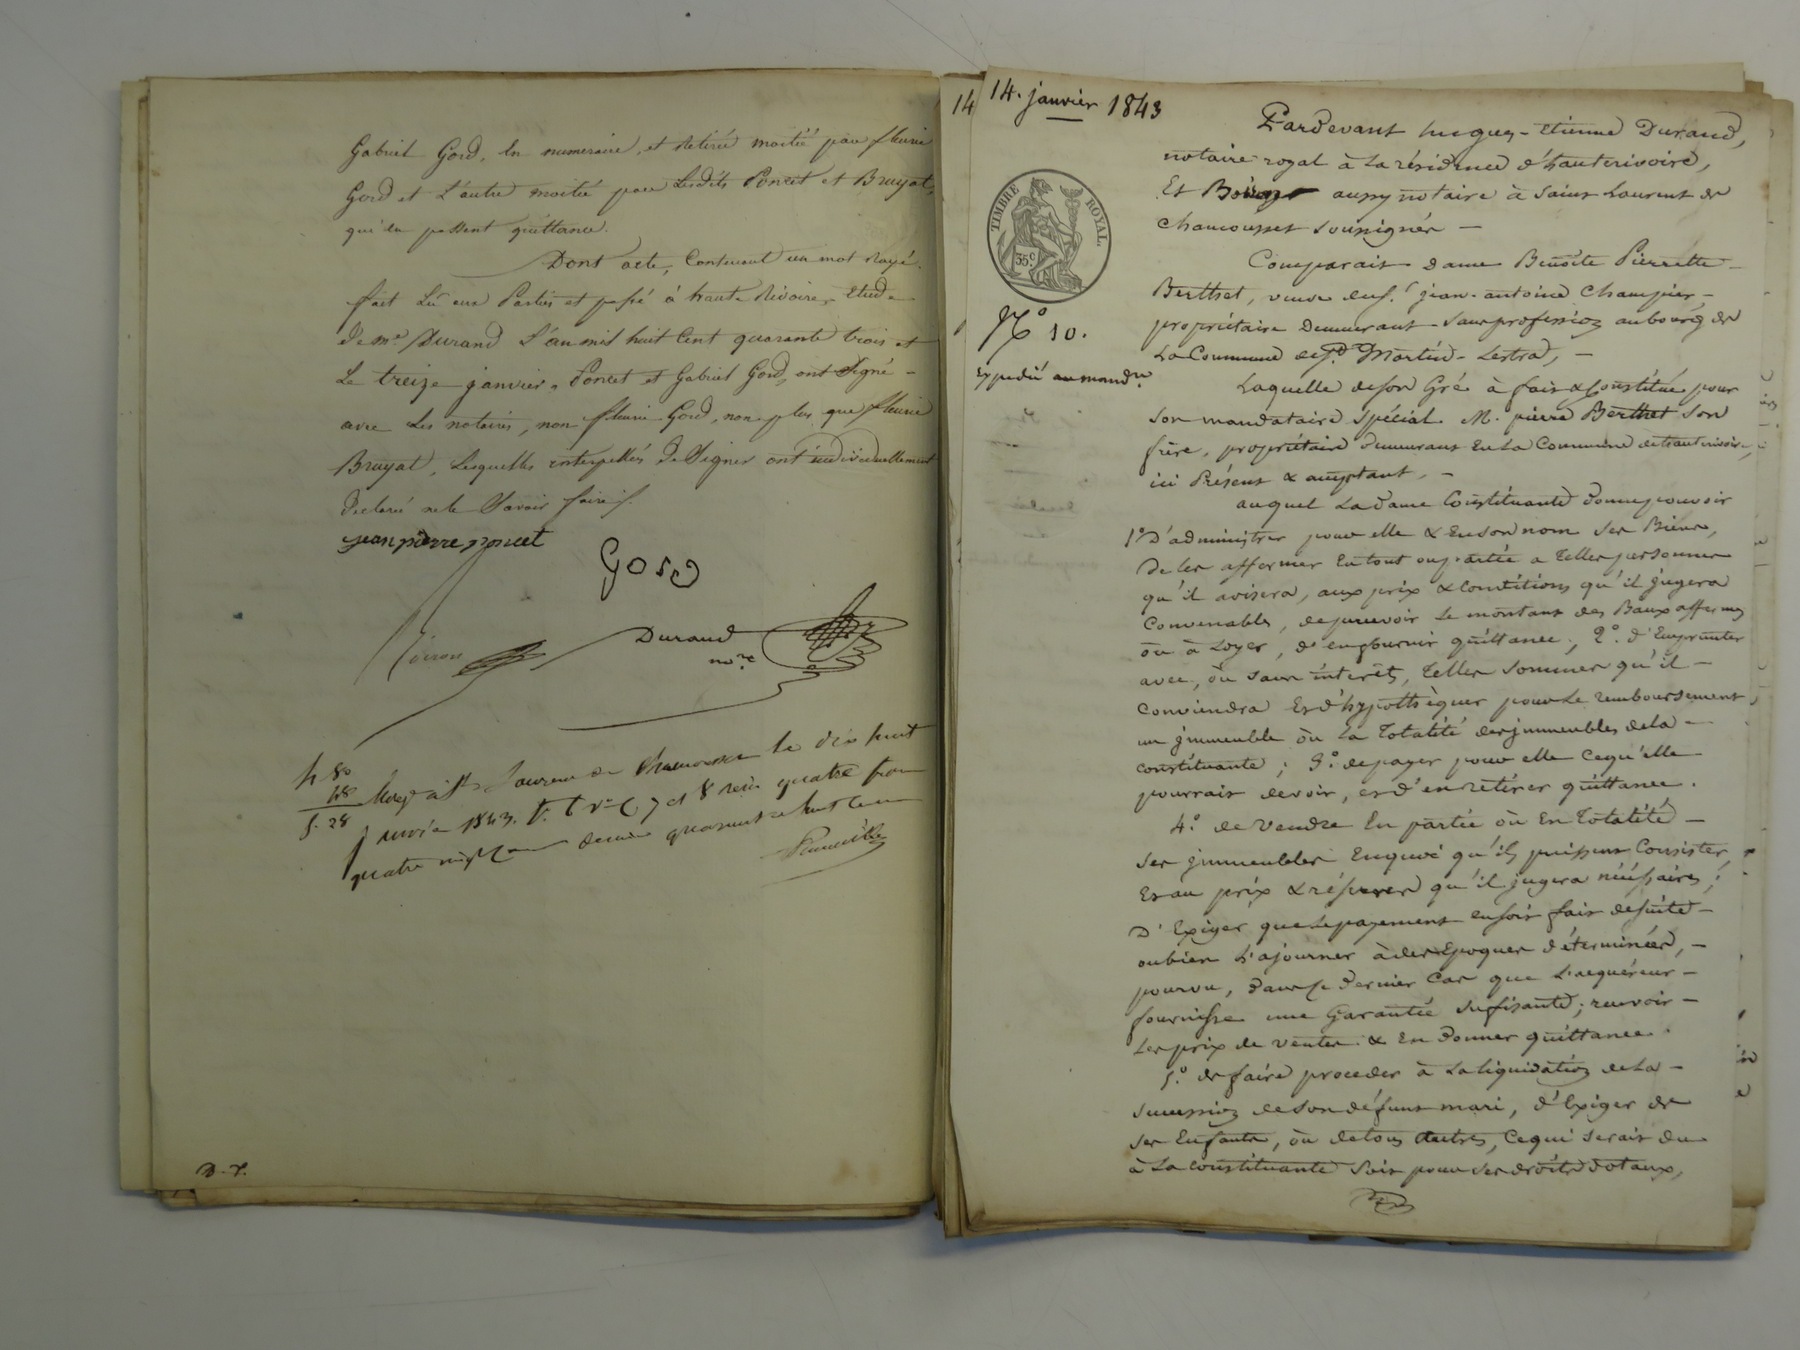 Gabriel Gord, en numeraire, et retirée moitié par fleurie
Gord et L'autre moitié par Lesdits Poncet et Bruyat,
qui en passent quittance.
Dont acte, Contenant un mot rayé.
fait Lu aux Parties et passé à haute Rivoire, Etude
de me. Durand L'an mil huit Cent quarante trois et
Le treize janvier, Poncet et Gabriel Gord, ont Signé -
avec Les notaires, non fleurie Gord, non plus que fleurie
Bruyat, Lesquelles interpellées de Signer ont individuellement
declaré ne le Savoir faire.
jean pierre poncet
Gord
Durand
nore
4 80
48
5. 28
à St Laurent de Chamousset le dix huit
janvier 1843. et 8 reçu quatre francs
quatre vingt decime quarante huit
D. r.
14
14. janvier 1843
TIMBRE ROYAL.
35 c
No 10.
Expedié au mandre.
Pardevant hugues-etienne Durand,
notaire royal à La résidence d'hauterivoire,
Et aussy notaire à Saint Laurent de
Chamousset soussignés -
Comparait dame Benoite Pierrette -
Berthet, veuve de sr. jean-antoine Champier -
propriétaire demeurant sans profession au bourg de
La Commune de St. Martin-Lestra, -
Laquelle de son Gré à fait & Constitué pour
son mandataire spécial M. pierre Berthet son
frère, propriétaire demeurant En La Commune de hauterivoire,
ici Présent & acceptant, -
auquel La dame Constituante donne pouvoir
1o D'administrer pour elle & En son nom ses Biens,
de les affermer En tout ou partie a Telles personnes
qu'il avisera, aux prix & Conditions qu'il jugera
Convenables, de percevoir Le montant des Baux affermes
ou à Loyer, d'en fournir quittance; 2o. d'Emprunter
avec, ou sans intérêts, Telles sommes qu'il -
Conviendra Et d'hypothèquer pour Le remboursement
un jmmeuble ou La Totalité des jmmeubles de La -
constituante; 3o. de payer pour elle Cequ'elle
pourrait devoir, et d'en retirer quittance.
4o. de Vendre En partie ou En Totalité -
ses jmmeubles En quoi qu'ils puissent Consister,
Et au prix & réserves qu'il jugera nécéssaires;
D'Exiger que Le payement en soit fait de suite -
ou bien L'ajourner à des Epoques déterminées, -
pourvu, dans Ce dernier Cas que L'acquéreur -
fournisse une Garantie suffisante; recevoir -
Les prix de ventes & En donner quittance.
5o. de faire proceder à La liquidation de La -
succession de son défunt mari, d'Exiger de
ses Enfants, ou de tous autres, Cequi serait du
à La Constituante soit pour ses droits dotaux,